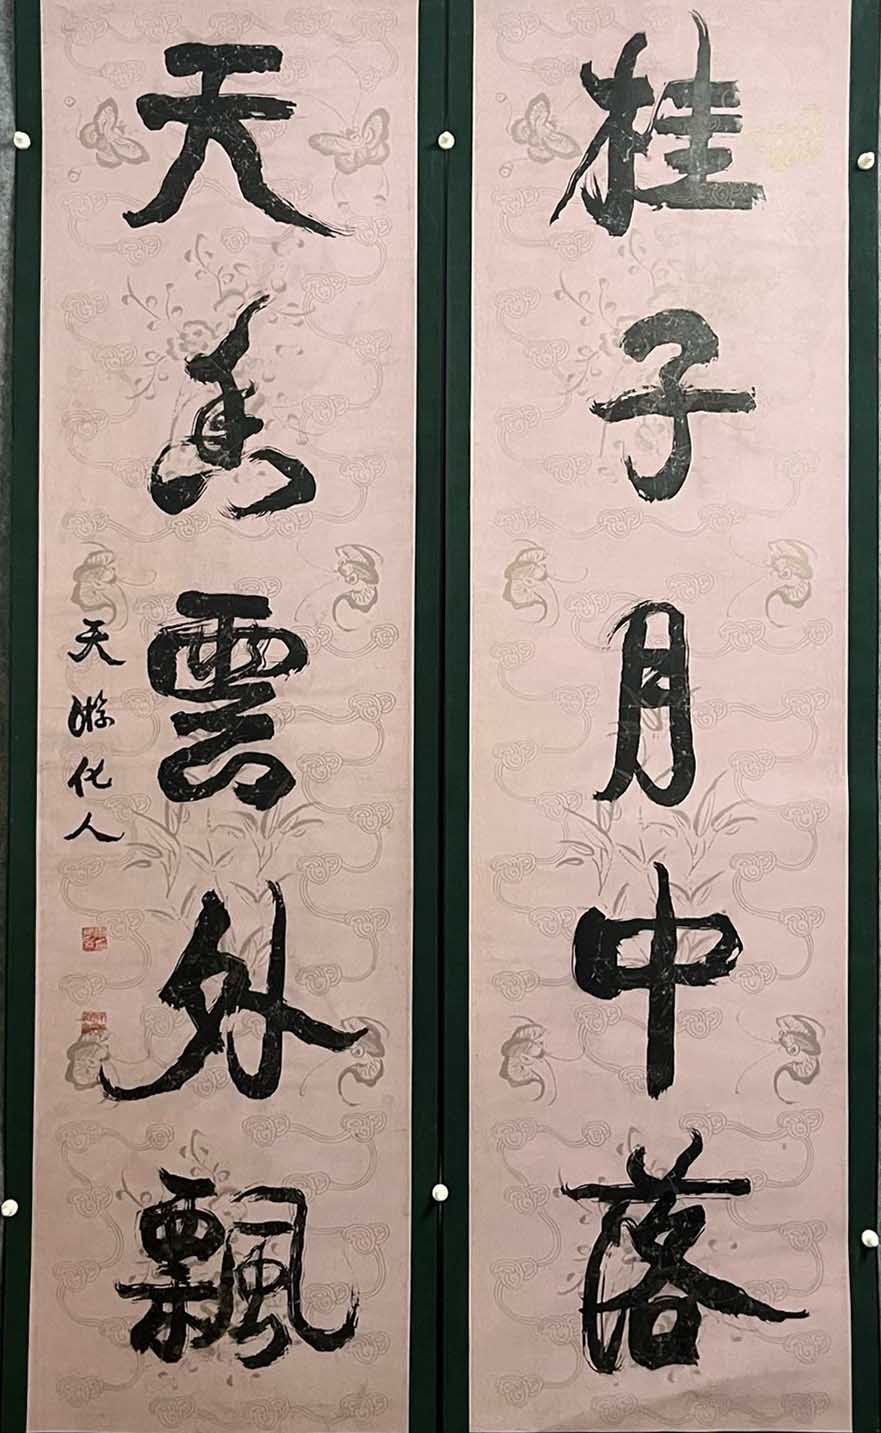 桂子月中落
天香雲外飄
天游化人